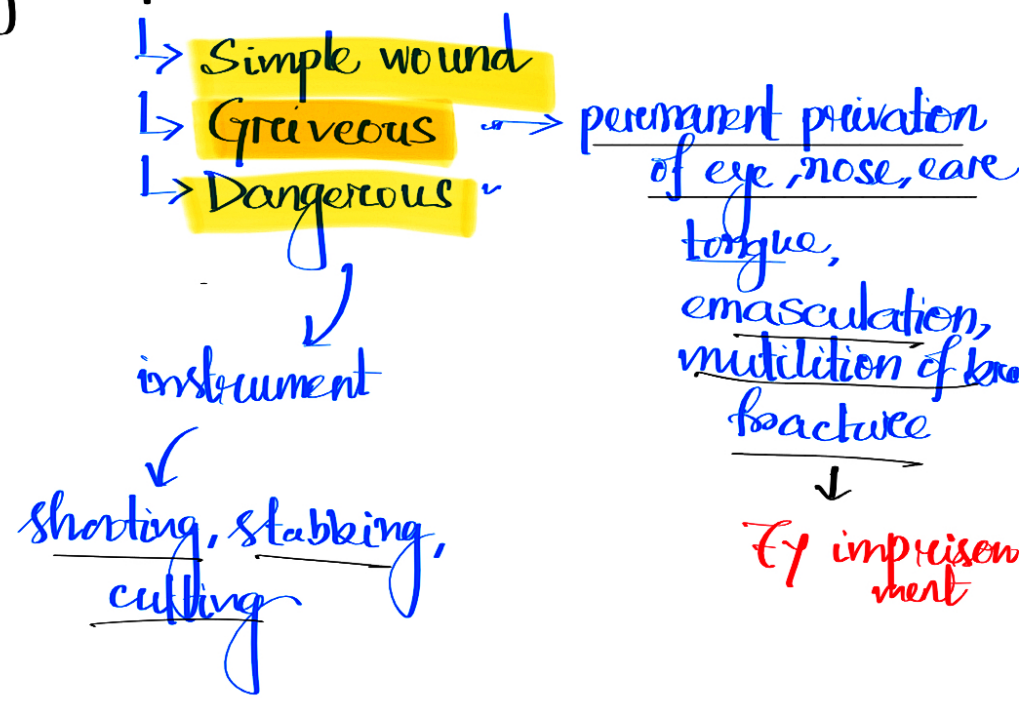 Simple wound
Greiveous → permanent preivation
of eye, nose, eare
tongue,
emasculation,
mutilition of
fracture
Dangerous
instrument
shooting, stabbing,
cutting
7y imprison
ment